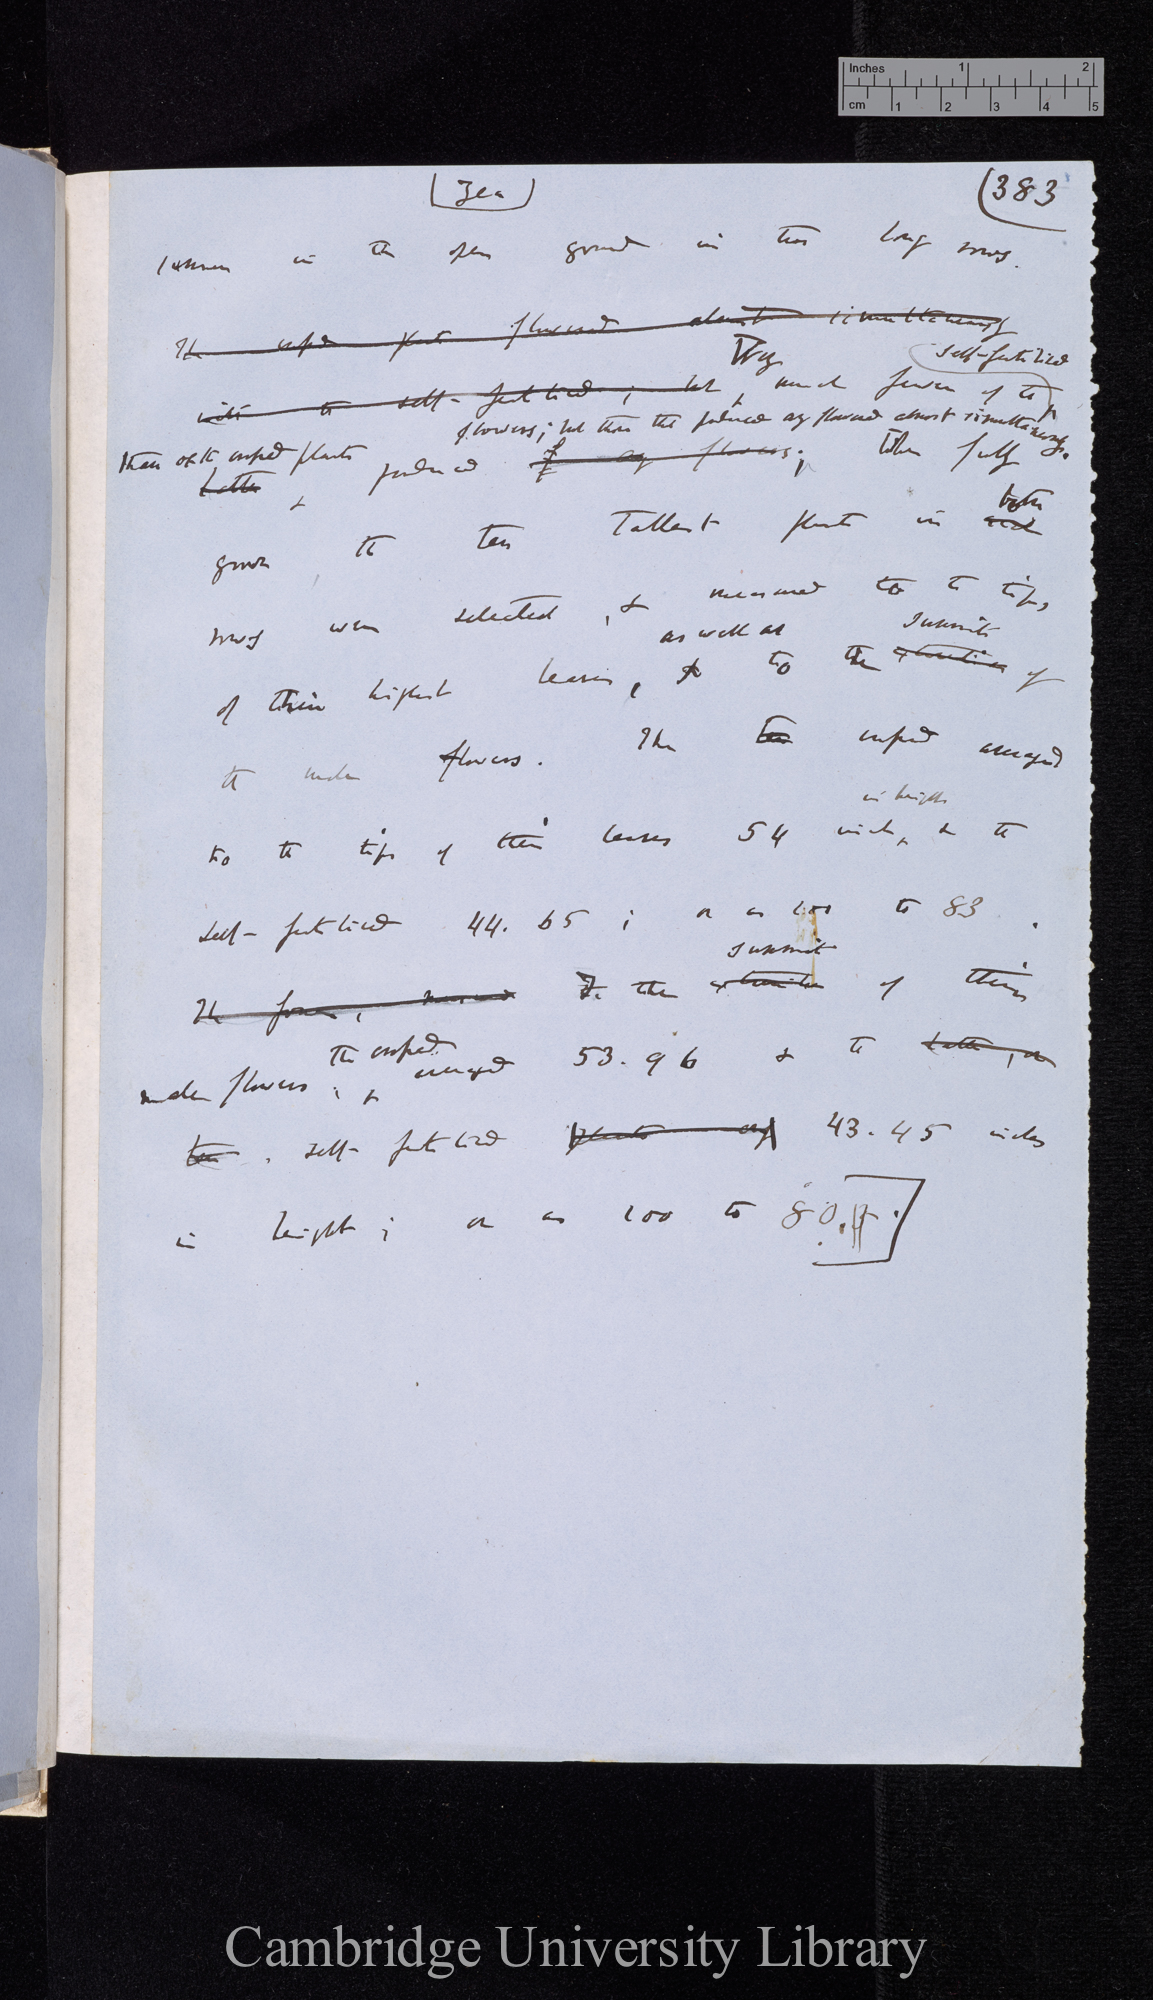 Inches 1 2
cm 1 2 3 4 5
(Zea)
(383
in the open ground in two long rows.
The crossed plants flowered almost simultaneously
They self-fertilised
with the self-fertilised; but much fewer of the
flowers; but those that produced any flowered almost simultaneously.
than of the crossed plants
latter & produced any flowers; When fully
both
grown the ten tallest plants in each
rows were selected, & measured to the tips
as well as summits
of their highest leaves, & to the extremities of
the male flowers. The ten crossed averaged
in height
to the tips of their leaves 54 inches, & the
self-fertilised 44.65; or as 100 to 83.
summit
The former, measured to the extremities of their
the crossed
male flowers; & averaged 53.96 & the latter, or
ten self-fertilised plants 43.45 inches
in height; or as 100 to 80.]
Cambridge University Library